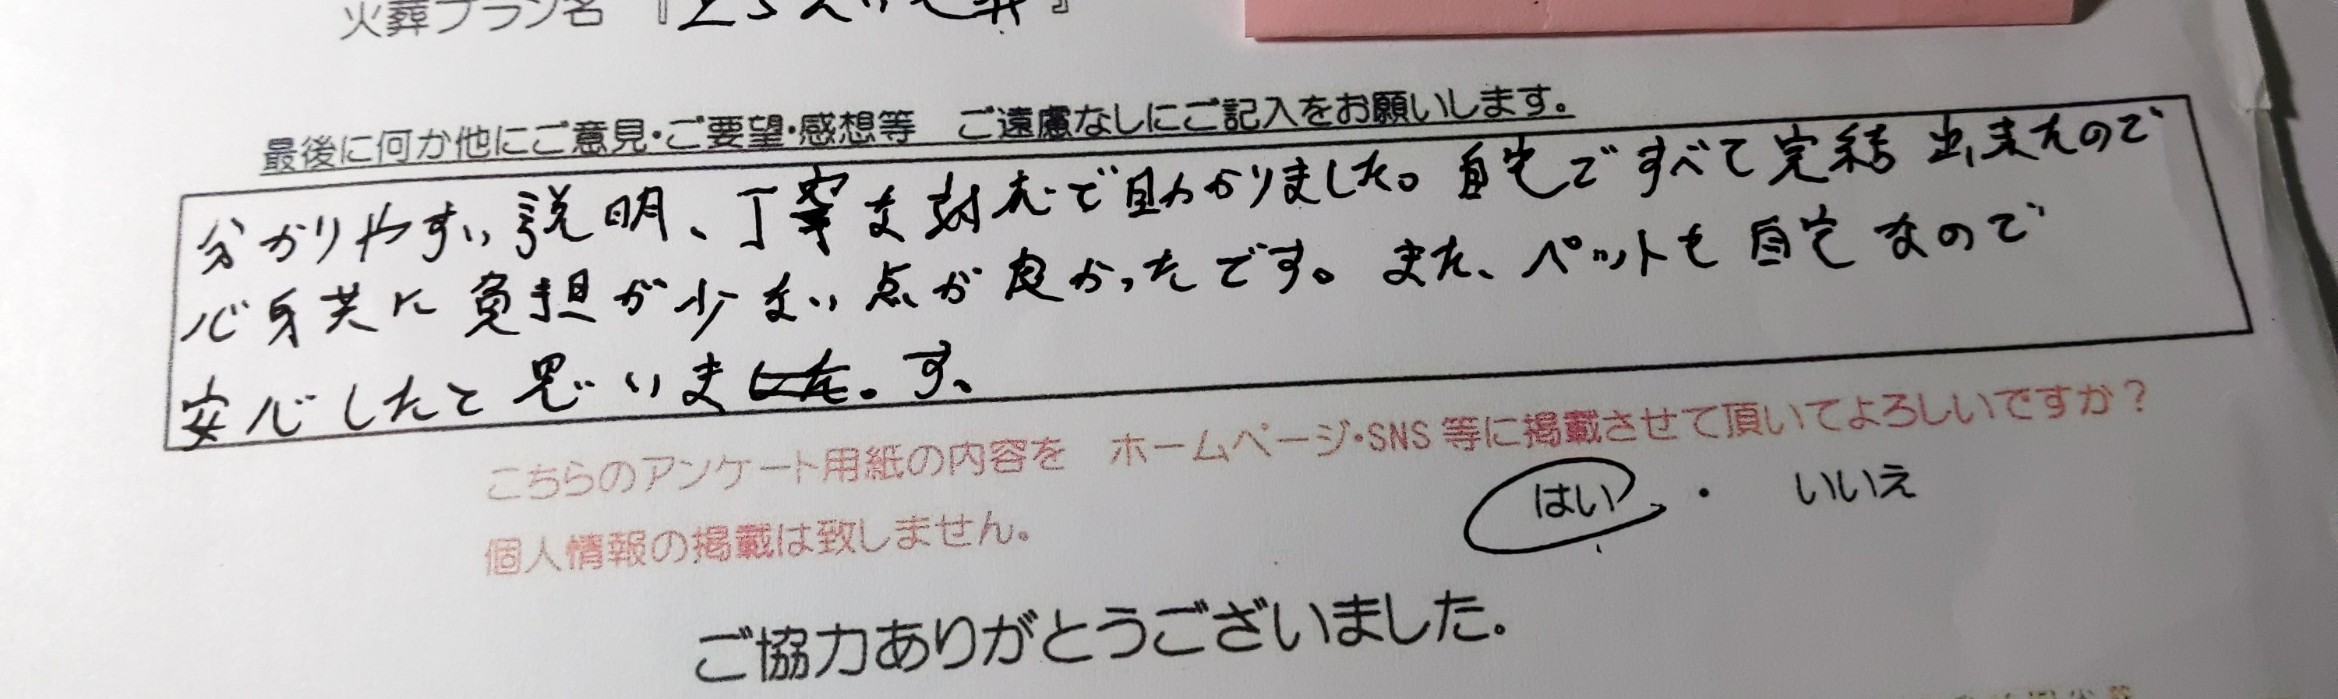 火葬プラン名『
最後に何か他にご意見・ご要望・感想等　ご遠慮なしにご記入をお願いします。
分かりやすい説明、丁寧な対応で助かりました。自宅ですべて完結出来たので
心身共に負担が少ない点が良かったです。また、ペットも自宅なので
安心したと思いました。す。
こちらのアンケート用紙の内容を　ホームページ・SNS等に掲載させて頂いてよろしいですか？
はい　・　いいえ
個人情報の掲載は致しません。
ご協力ありがとうございました。